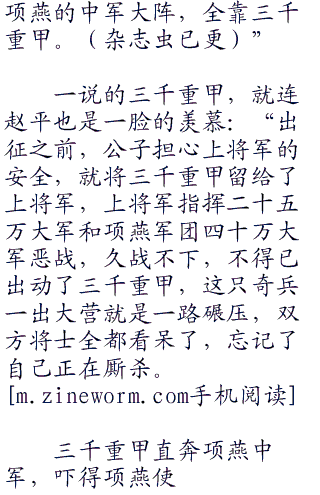 项燕的中军大阵，全靠三千
重甲。（杂志虫已更）”
一说的三千重甲，就连
赵平也是一脸的羡慕：“出
征之前，公子担心上将军的
安全，就将三千重甲留给了
上将军，上将军指挥二十五
万大军和项燕军团四十万大
军恶战，久战不下，不得已
出动了三千重甲，这只奇兵
一出大营就是一路碾压，双
方将士全都看呆了，忘记了
自己正在厮杀。
[m.zineworm.com手机阅读]
三千重甲直奔项燕中
军，吓得项燕使